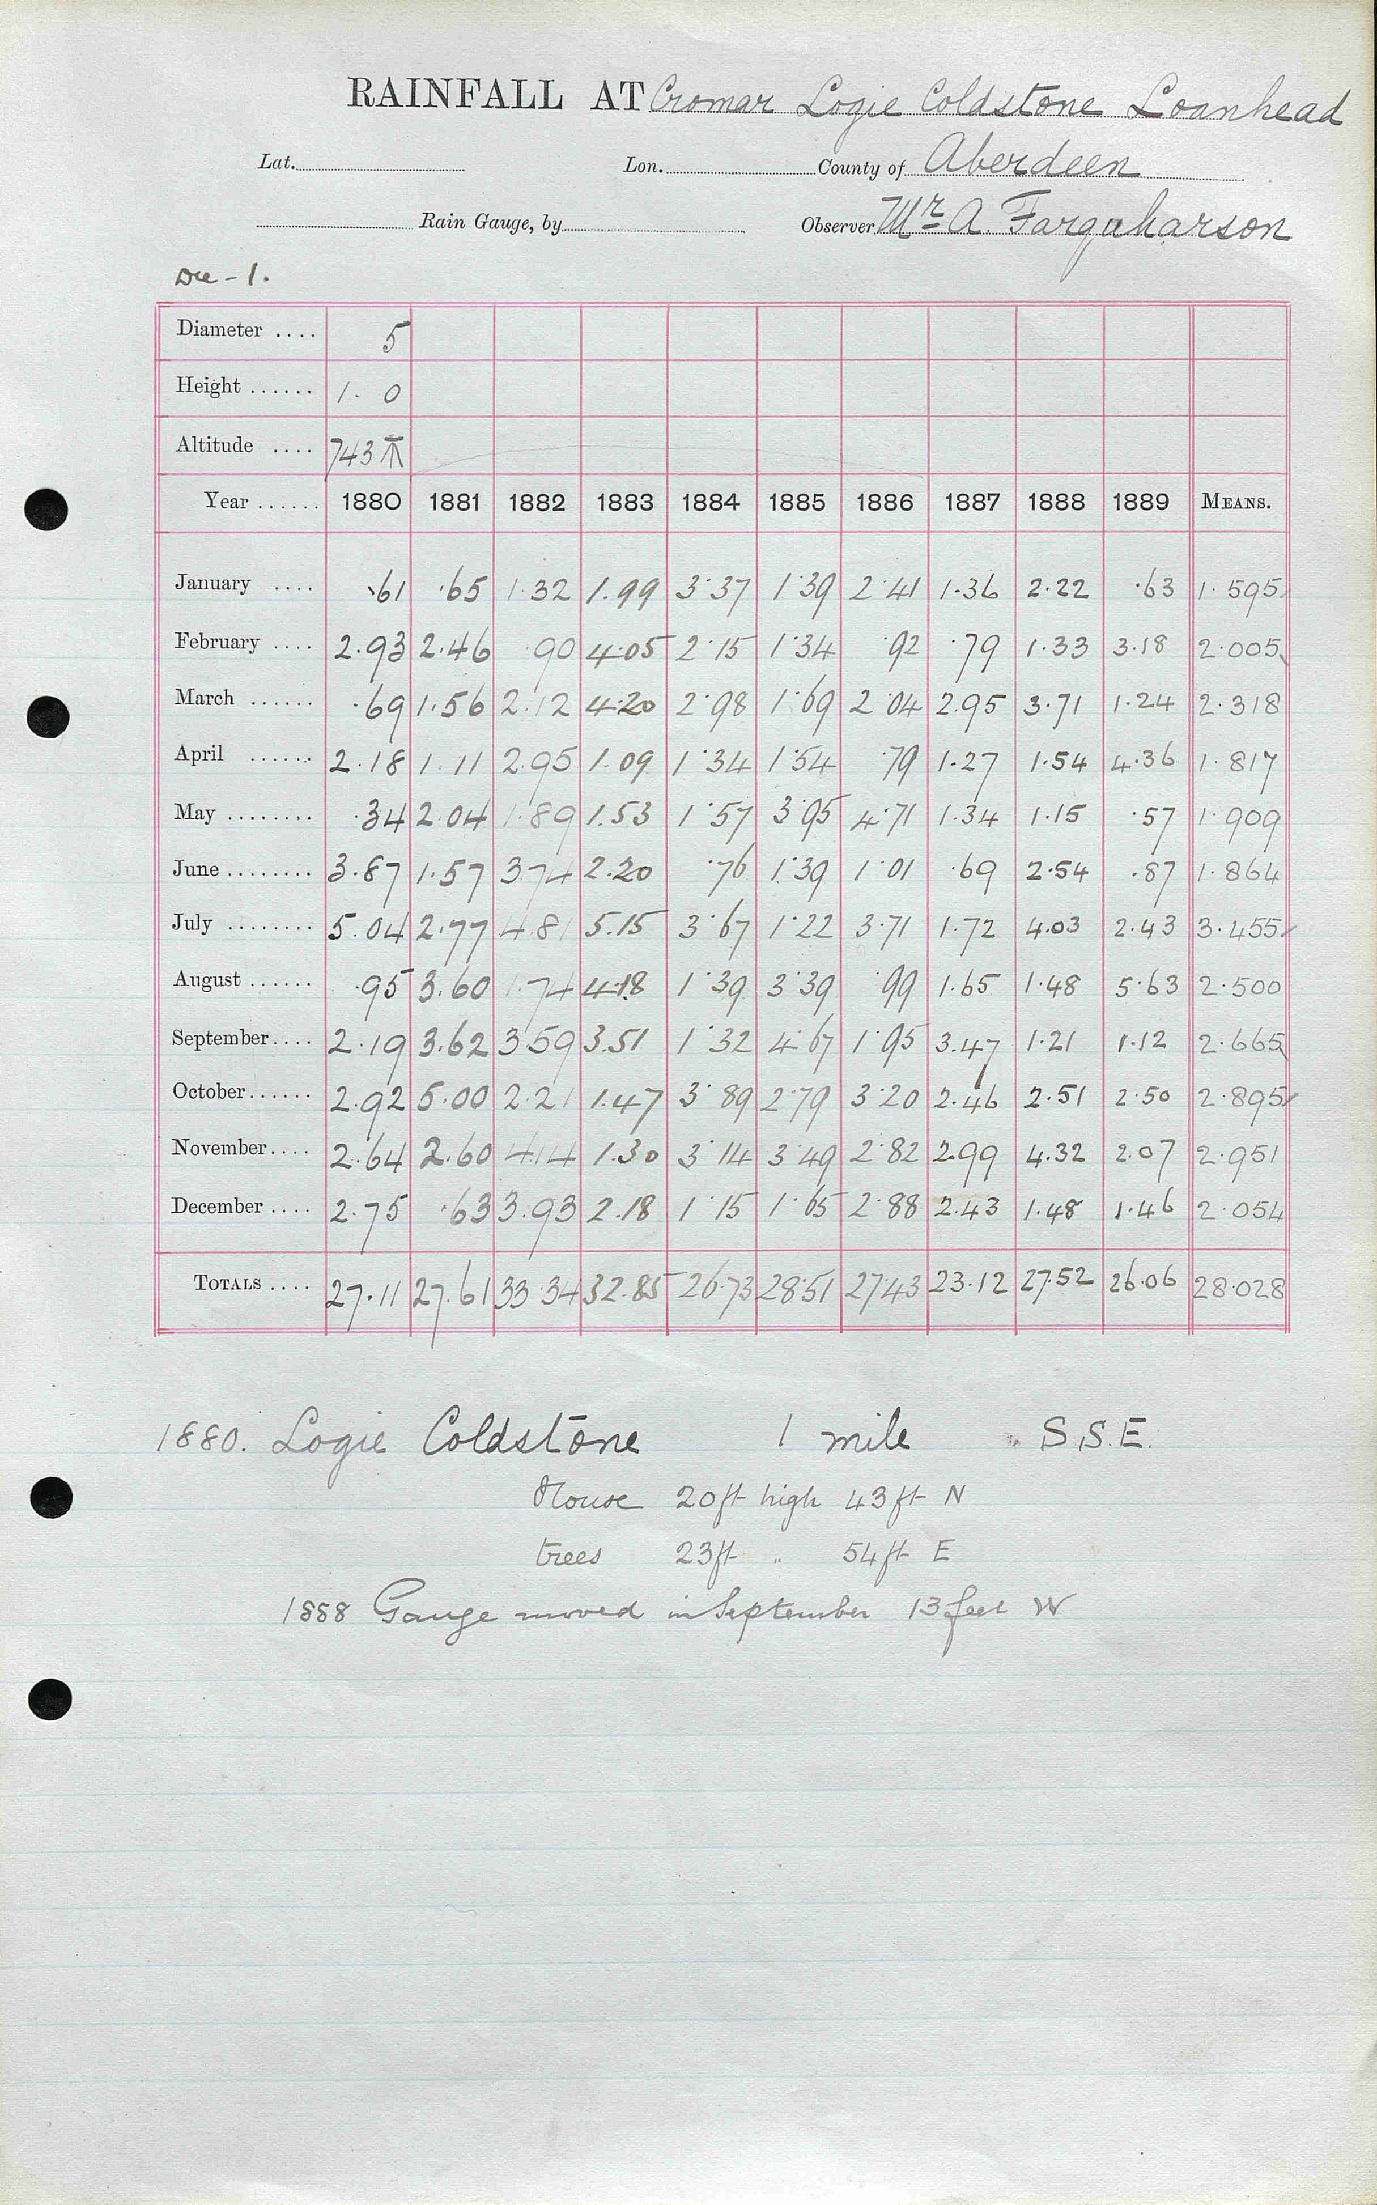 RAINFALL AT Cromar Logie Coldstone Loanhead
Lat. Lon. County of Aberdeen
Rain Gauge, by Observer Mr A. Farquharson
Dee - 1.
Diameter .... 5
Height ...... 1. 0
Altitude .... 743
Year ...... 1880 1881 1882 1883 1884 1885 1886 1887 1888 1889 MEANS.
January .... .61 .65 1.32 1.99 3.37 1.39 2.41 1.36 2.22 .63 1.595
February .... 2.93 2.46 .90 4.05 2.15 1.34 .92 .79 1.33 3.18 2.005
March ...... .69 1.56 2.12 4.20 2.98 1.69 2.04 2.95 3.71 1.24 2.318
April ...... 2.18 1.11 2.95 1.09 1.34 1.54 .79 1.27 1.54 4.36 1.817
May ........ .34 2.04 1.89 1.53 1.57 3.95 4.71 1.34 1.15 .57 1.909
June ........ 3.87 1.57 3.74 2.20 .76 1.39 1.01 .69 2.54 .87 1.864
July ........ 5.04 2.77 4.81 5.15 3.67 1.22 3.71 1.72 4.03 2.43 3.455
August ...... .95 3.60 1.74 4.18 1.39 3.39 .99 1.65 1.48 5.63 2.500
September .... 2.19 3.62 3.59 3.51 1.32 4.67 1.95 3.47 1.21 1.12 2.665
October ...... 2.92 5.00 2.21 1.47 3.89 2.79 3.20 2.46 2.51 2.50 2.895
November .... 2.64 2.60 4.14 1.30 3.14 3.49 2.82 2.99 4.32 2.07 2.951
December .... 2.75 .63 3.93 2.18 1.15 1.65 2.88 2.43 1.48 1.46 2.054
TOTALS .... 27.11 27.61 33.34 32.85 26.73 28.51 27.43 23.12 27.52 26.06 28.028
1880. Logie Coldstone 1 mile S.S.E.
House 20ft high 43ft N
trees 23ft " 54ft E
1888 Gauge moved in September 13 feet W